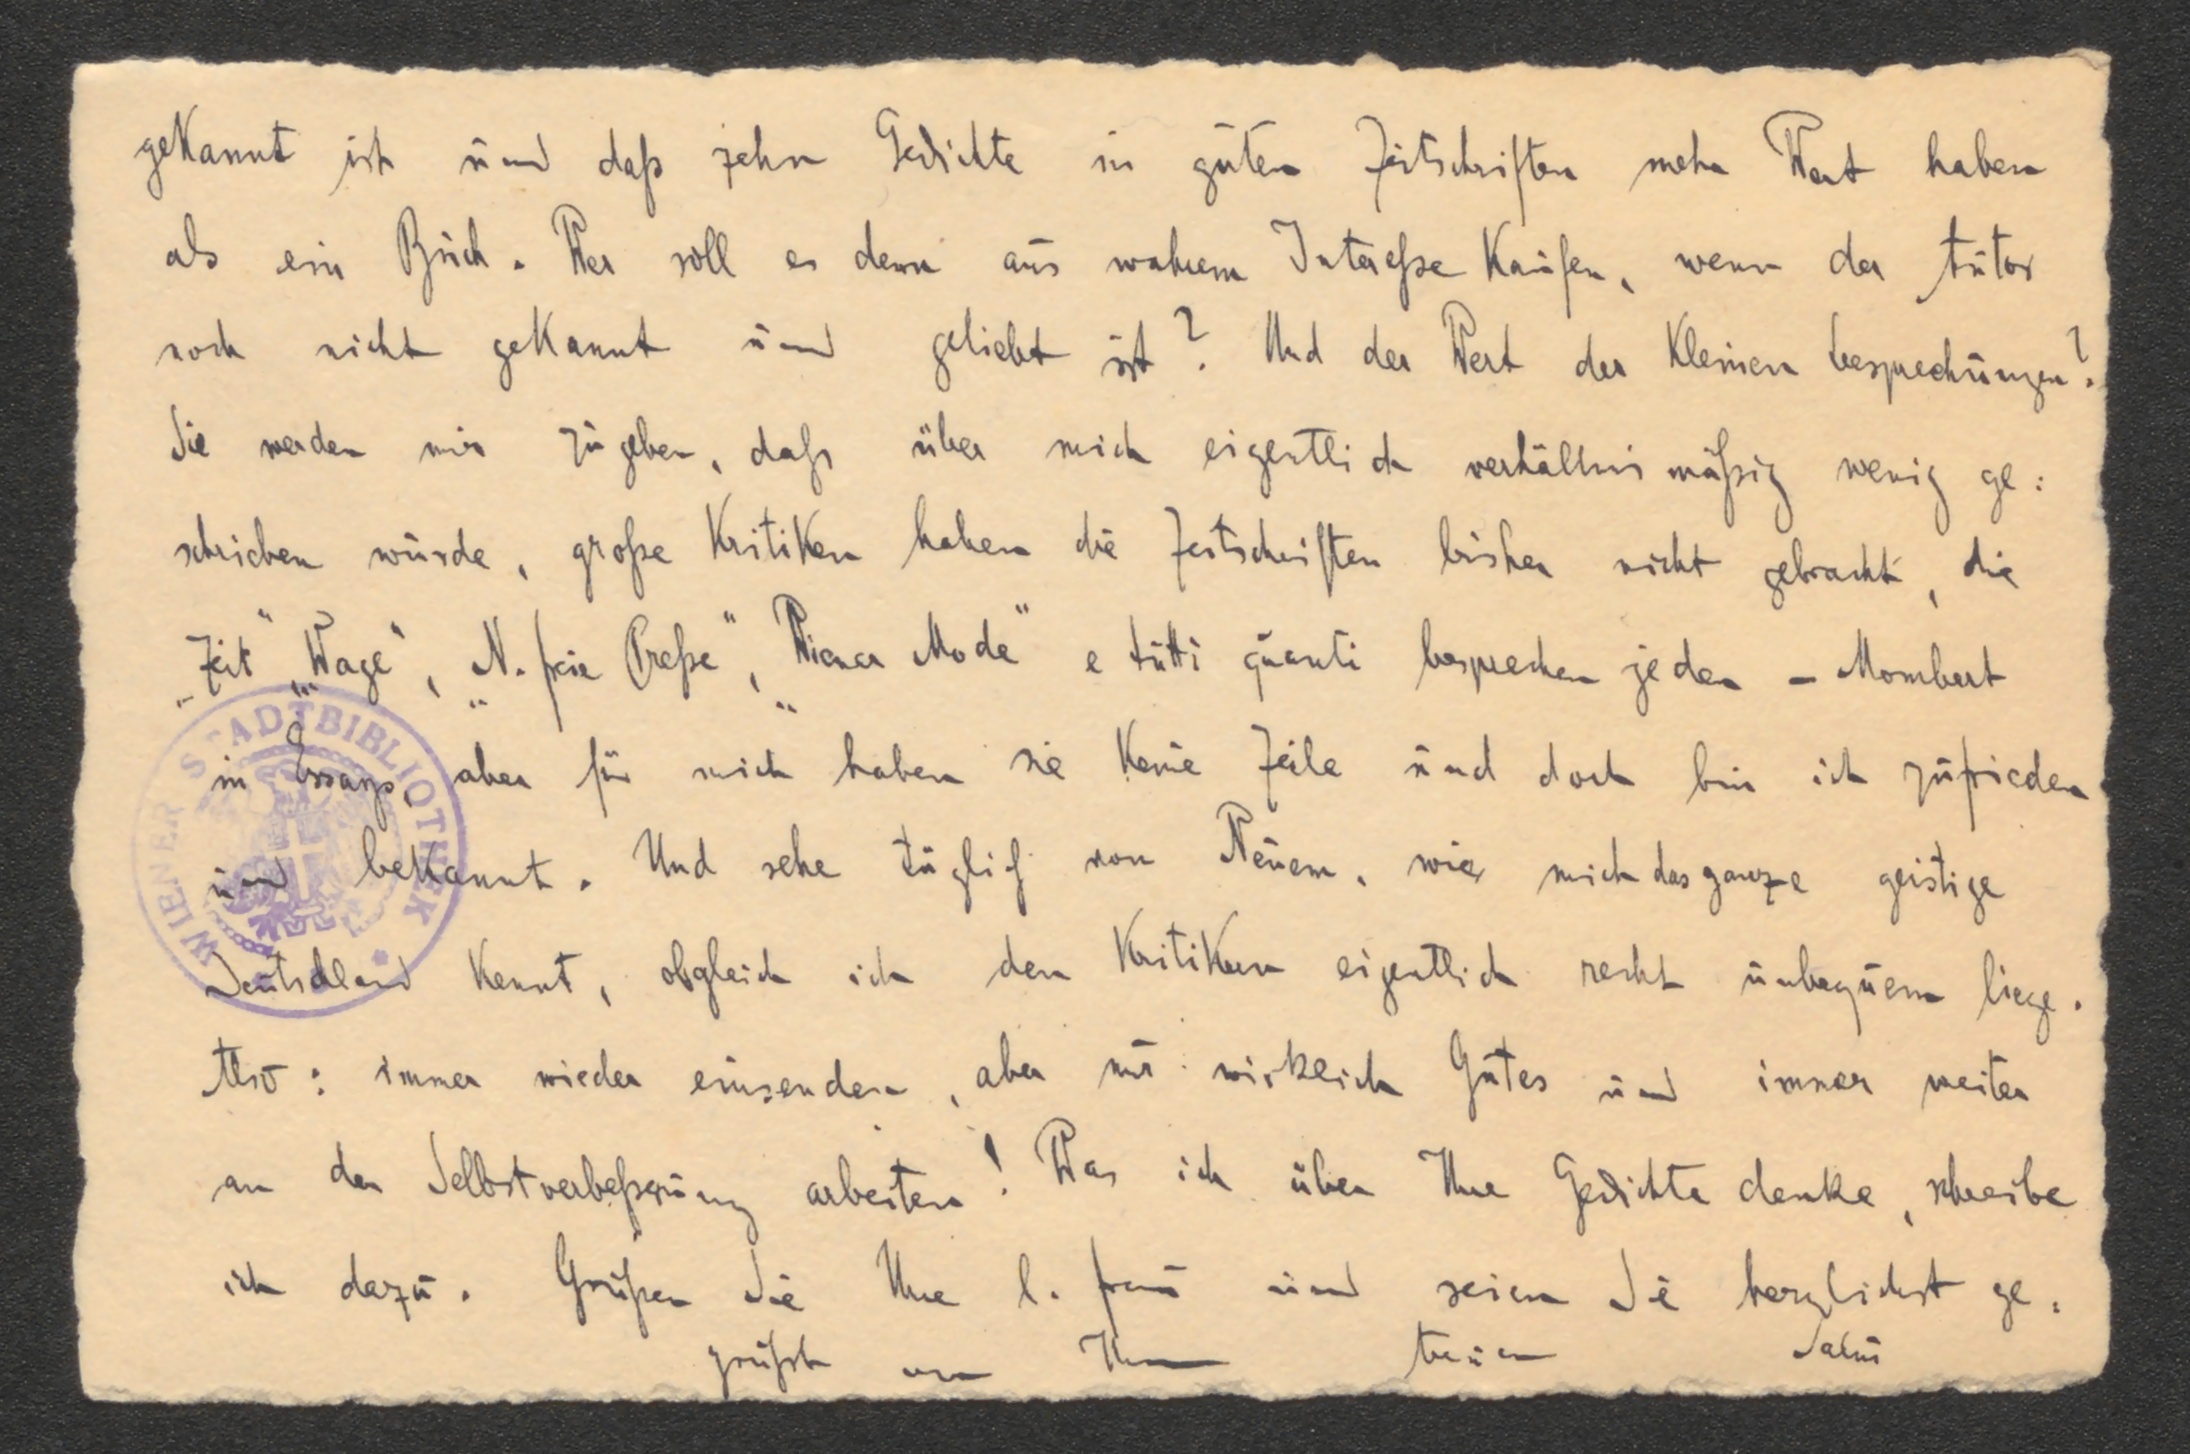 gekannt ist und daß zehn Gedichte in guten Zeitschriften mehr Wert haben
als ein Buch. Wer soll es denn aus wahrem Interesse kaufen, wenn der Autor
noch nicht gekannt und geliebt ist? Und der Wert der kleinen Besprechungen?
Sie werden mir zugeben, daß über mich eigentlich verhältnismäßig wenig ge:
schrieben wurde, große Kritiken haben die Zeitschriften bisher nicht gebracht, die
„Zeit" „Wage", „N. freie Presse", „Wiener Mode" e tutti quanti besprechen jeden – Mombert
in Essays, aber für mich haben sie keine Zeile und doch bin ich zufrieden
und bekannt. Und sehe täglich von Neuem, wie mich das ganze geistige
Deutschland kennt, obgleich ich den Kritikern eigentlich recht unbequem liege.
Also: immer wieder einsenden, aber nur wirklich Gutes und immer weiter
an der Selbstverbesserung arbeiten! Was ich über Ihre Gedichte denke, schreibe
ich dazu. Grüßen Sie Ihre l. Frau und seien Sie herzlichst ge:
grüßt von Ihrem treuen Salus
WIENER STADTBIBLIOTHEK